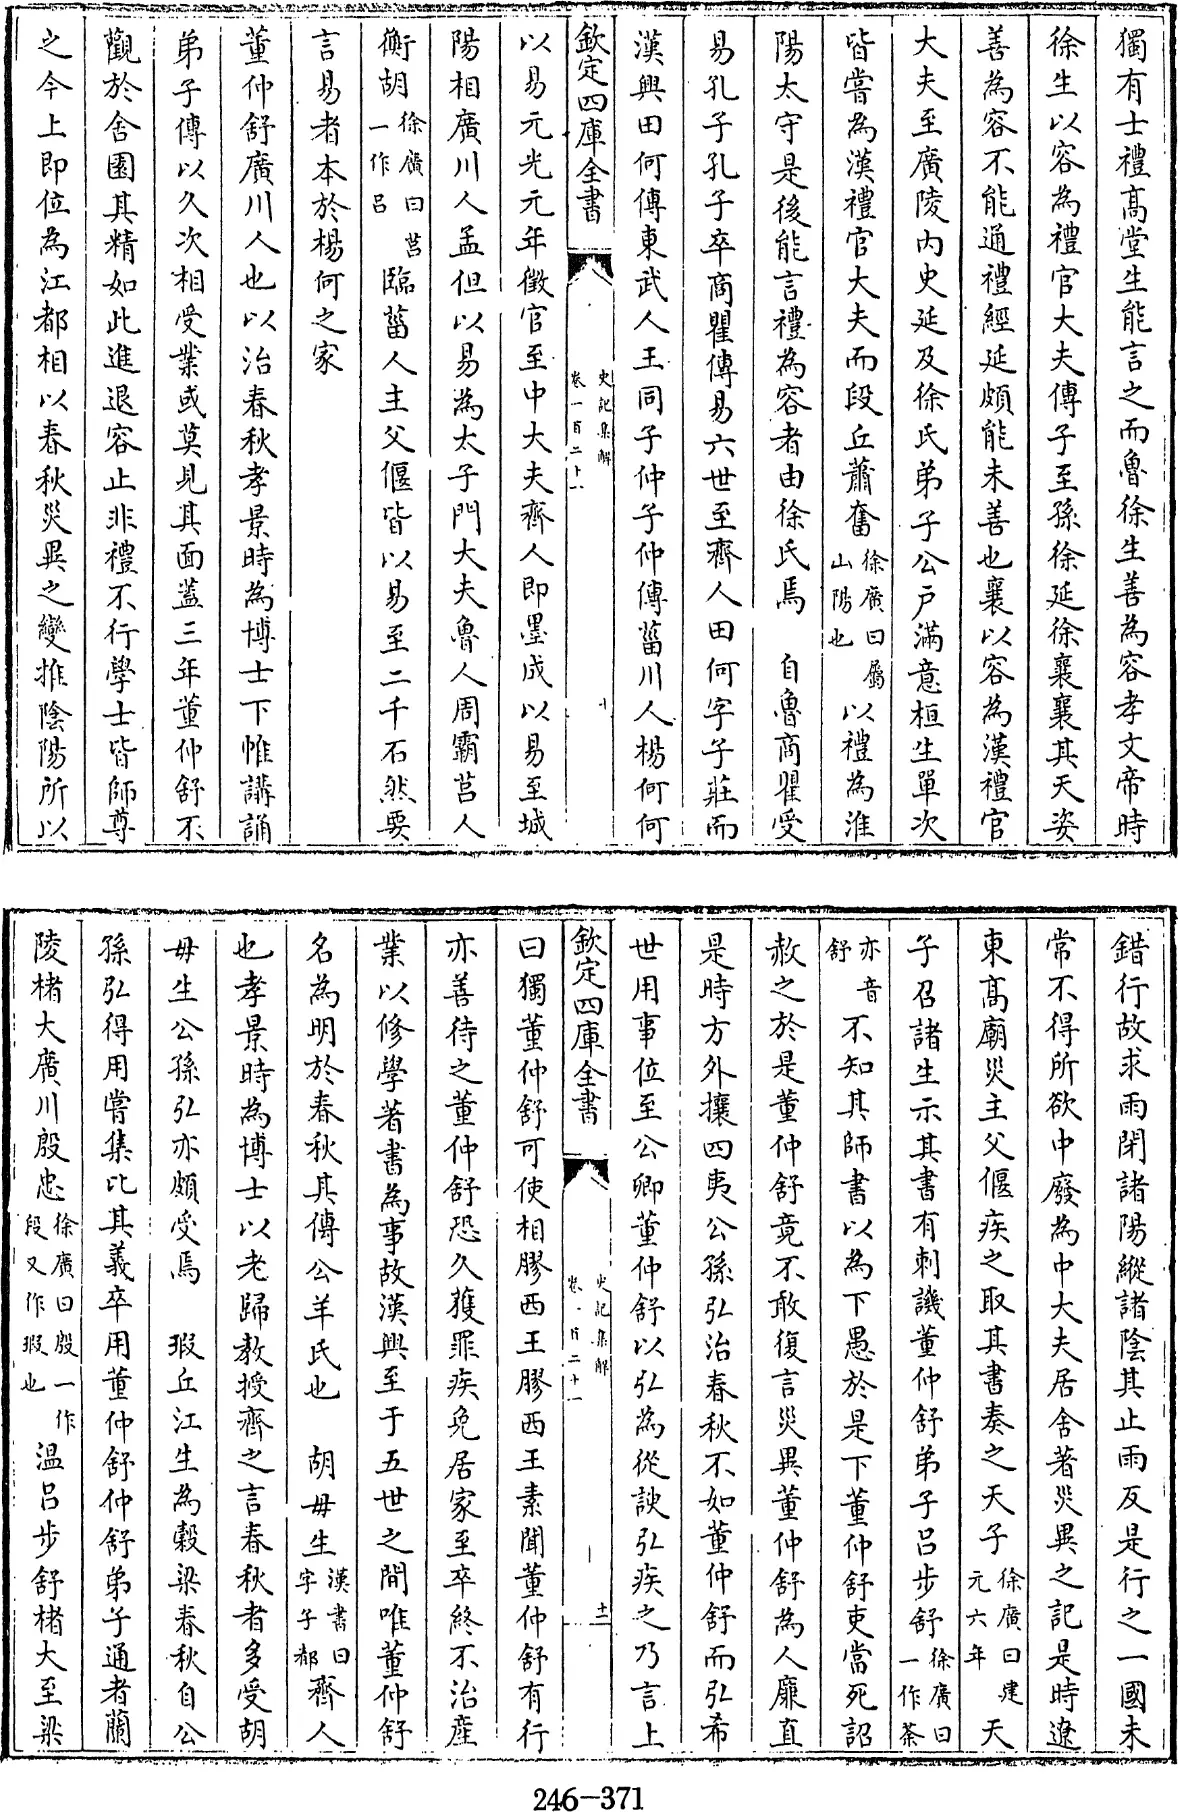 獨有士禮髙堂生能言之而魯徐生善為容孝文帝時
徐生以容為禮官大夫傳子至孫徐延徐襄襄其天姿
善為容不能通禮經延頗能未善也襄以容為漢禮官
大夫至廣陵内史延及徐氏弟子公户滿意桓生單次
皆嘗為漢禮官大夫而段丘蕭奮徐廣曰屬山陽也以禮為淮
陽太守是後能言禮為容者由徐氏焉　自魯商瞿受
易孔子孔子卒商瞿傳易六世至齊人田何字子莊而
漢興田何傳東武人王同子仲子仲傳菑川人楊何何
欽定四庫全書　史記集解卷一百二十一　十
以易元光元年徵官至中大夫齊人即墨成以易至城
陽相廣川人孟但以易為太子門大夫魯人周霸莒人
衡胡徐廣曰莒一作呂臨菑人主父偃皆以易至二千石然要
言易者本於楊何之家
董仲舒廣川人也以治春秋孝景時為博士下帷講誦
弟子傳以久次相受業或莫見其面蓋三年董仲舒不
觀於舍園其精如此進退容止非禮不行學士皆師尊
之今上即位為江都相以春秋災異之變推陰陽所以
錯行故求雨閉諸陽縱諸陰其止雨反是行之一國未
常不得所欲中廢為中大夫居舍著災異之記是時遼
東髙廟災主父偃疾之取其書奏之天子徐廣曰建元六年天
子召諸生示其書有刺譏董仲舒弟子呂步舒徐廣曰一作荼
亦音舒不知其師書以為下愚於是下董仲舒吏當死詔
赦之於是董仲舒竟不敢復言災異董仲舒為人廉直
是時方外攘四夷公孫弘治春秋不如董仲舒而弘希
世用事位至公卿董仲舒以弘為從諛弘疾之乃言上
欽定四庫全書　史記集解卷一百二十一　十一
曰獨董仲舒可使相膠西王膠西王素聞董仲舒有行
亦善待之董仲舒恐久獲罪疾免居家至卒終不治產
業以修學著書為事故漢興至于五世之間唯董仲舒
名為明於春秋其傳公羊氏也　胡毋生漢書曰字子都齊人
也孝景時為博士以老歸教授齊之言春秋者多受胡
毋生公孫弘亦頗受焉　瑕丘江生為穀梁春秋自公
孫弘得用嘗集比其義卒用董仲舒仲舒弟子通者蘭
陵楮大廣川殷忠徐廣曰殷一作段又作瑕也温呂步舒楮大至梁
246-371